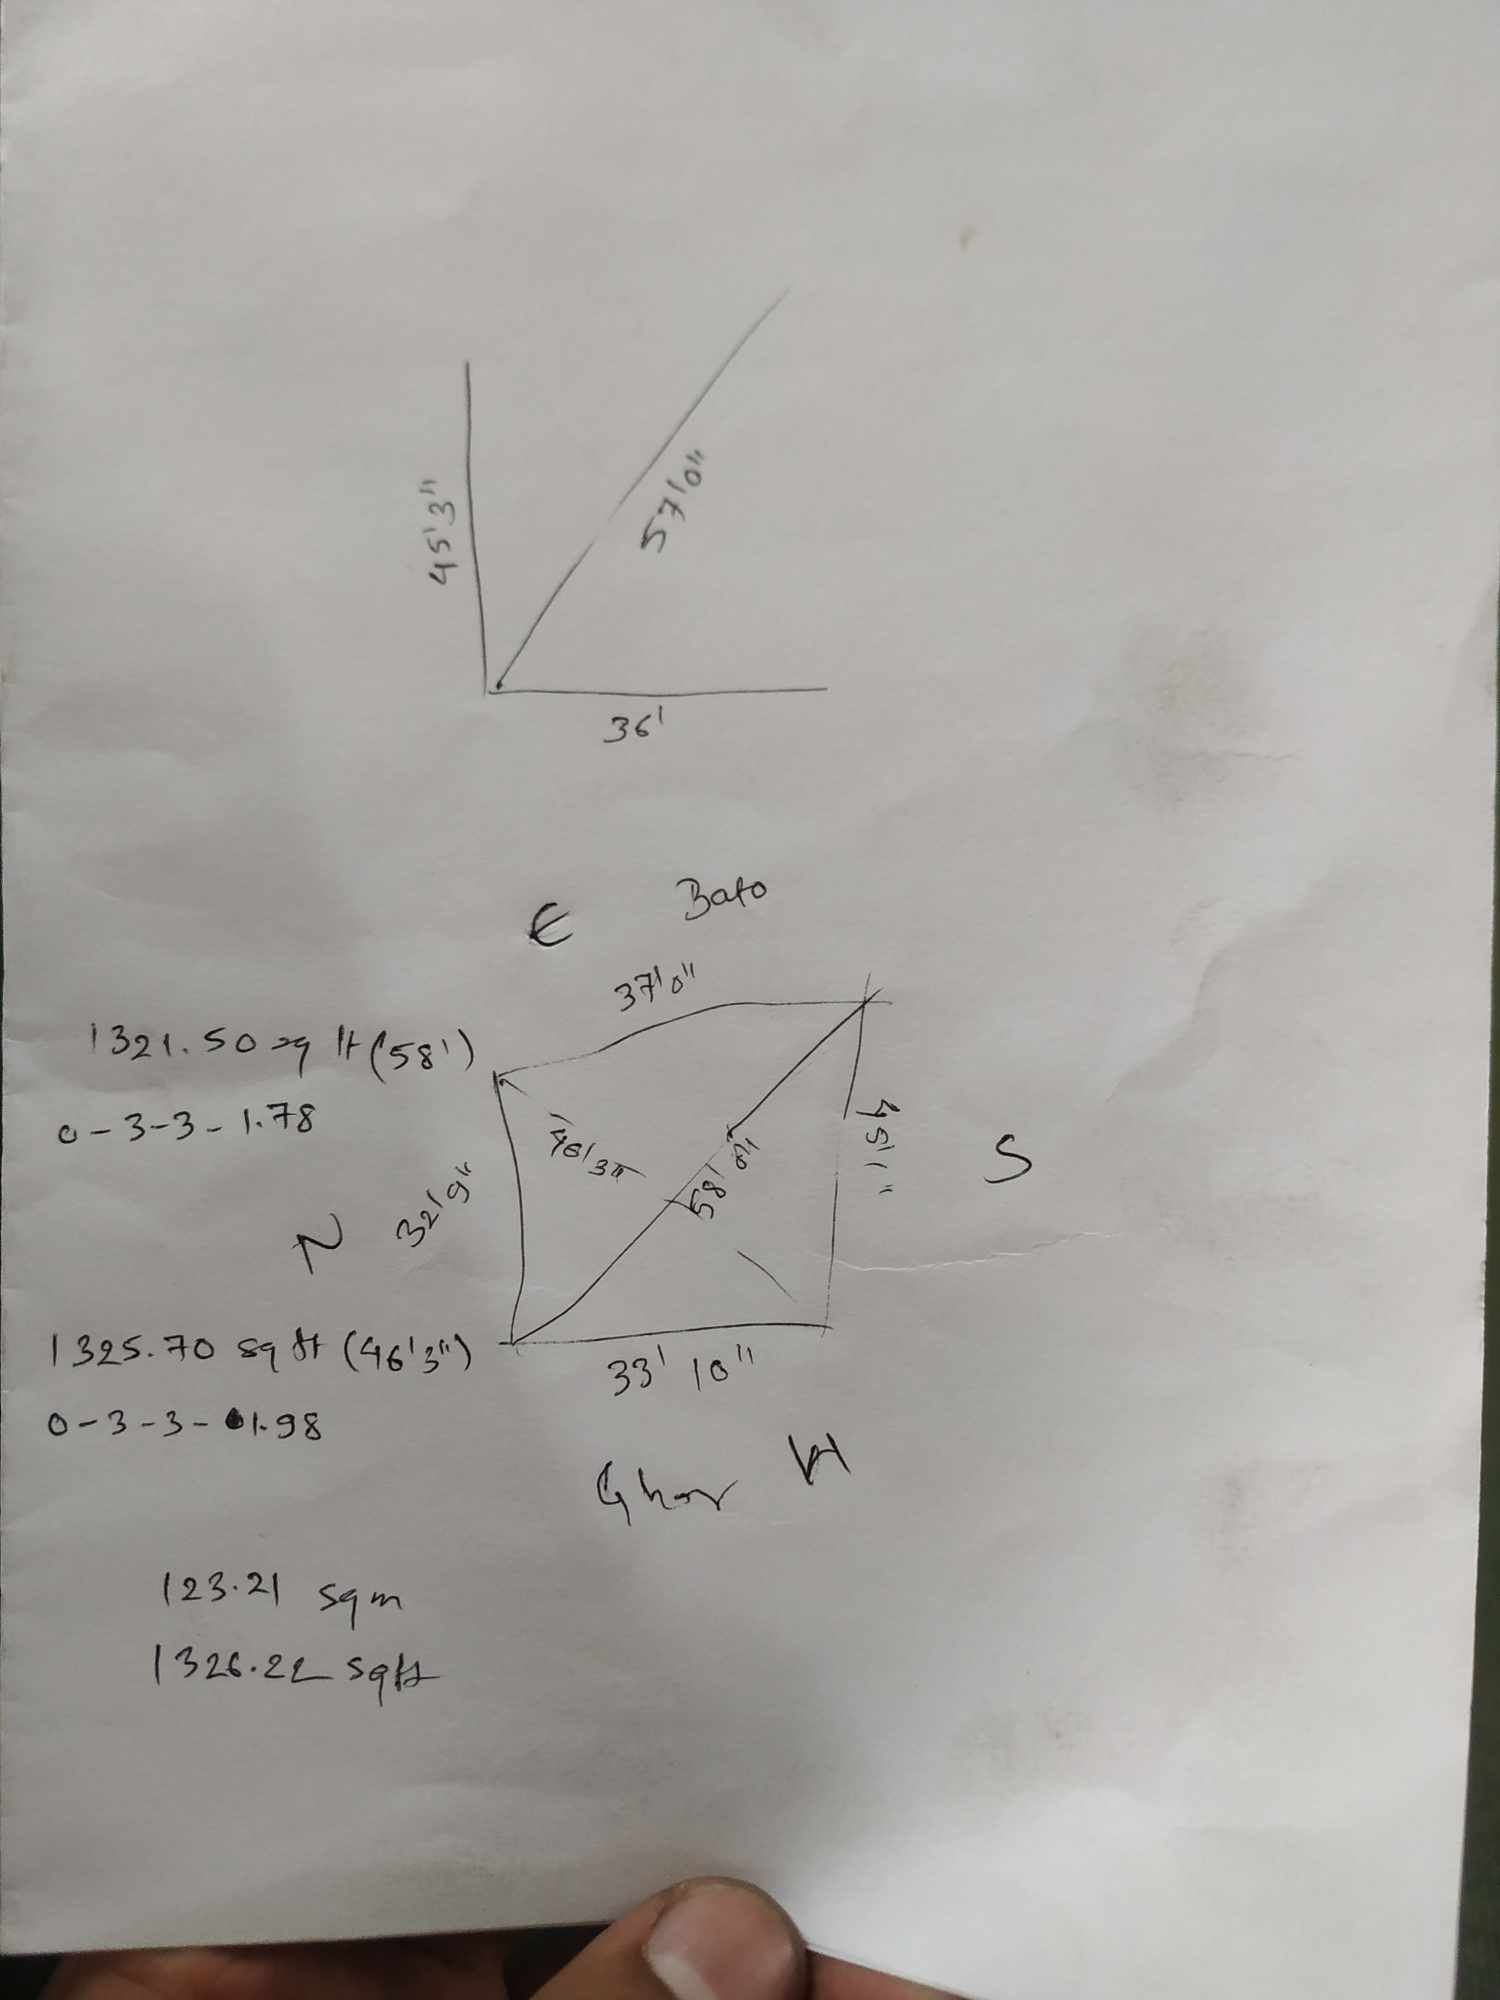 45'3"
57'0"
36'
E Bato
37'0"
1321.50 sq ft (58')
0-3-3-1.78
46'3"
58'0"
45'1"
S
N 32'9"
1325.70 sq ft (46'3")
0-3-3-1.98
33' 10"
Ghar W
123.21 sqm
1326.22 sqft